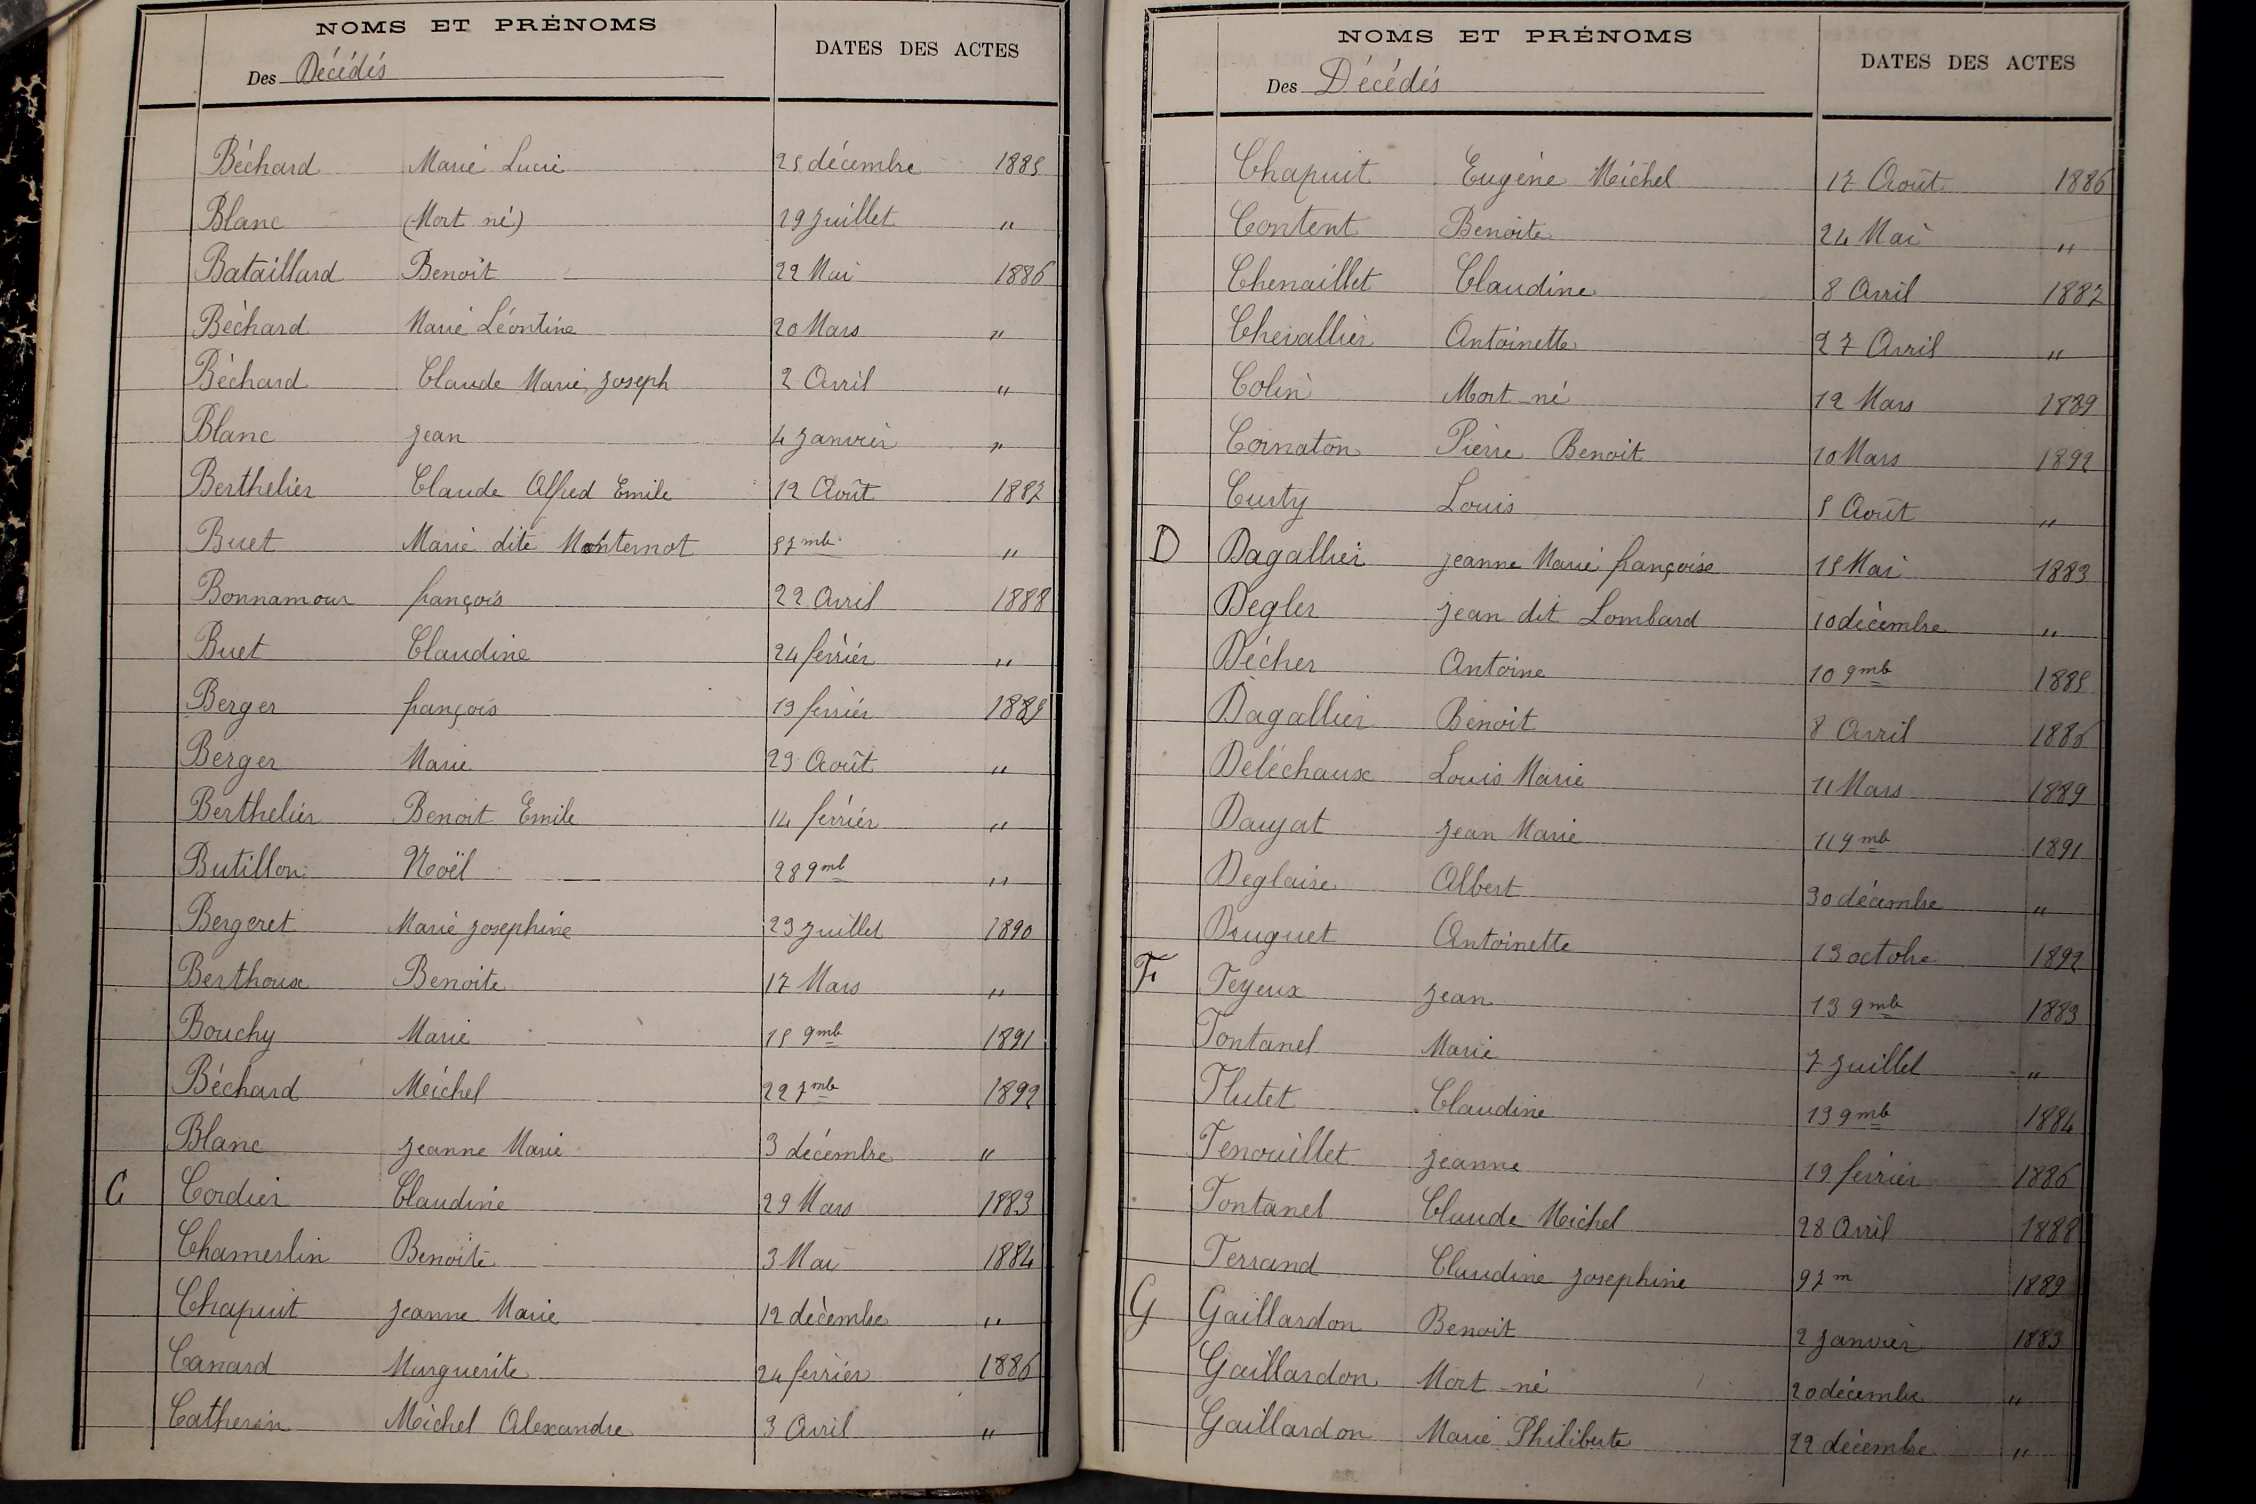 NOMS ET PRÉNOMS
DATES DES ACTES
Des Décédés
Béchard Marie Lucie 25 décembre 1885
Blanc (Mort né) 29 Juillet "
Bataillard Benoit 22 Mai 1886
Béchard Marie Léontine 20 Mars "
Béchard Claude Marie Joseph 2 Avril "
Blanc Jean 4 Janvier "
Berthelier Claude Alfred Emile 12 Août 1887
Buet Marie dite Monternot 5 7mb "
Bonnamour françois 22 Avril 1888
Buet Claudine 24 février "
Berger françois 13 février 1889
Berger Marie 23 Août "
Berthelier Benoit Emile 14 février "
Butillon Noël 28 9mb "
Bergeret Marie Josephine 23 Juillet 1890
Berthoux Benoite 17 Mars "
Bouchy Marie 15 9mb 1891
Béchard Michel 22 7mb 1892
Blanc Jeanne Marie 3 décembre "
C Cordier Claudine 29 Mars 1883
Chamerlin Benoite 3 Mai 1884
Chapuit Jeanne Marie 12 décembre "
Canard Marguerite 24 février 1886
Catherin Michel Alexandre 3 Avril "
NOMS ET PRÉNOMS
DATES DES ACTES
Des Décédés
Chapuit Eugène Michel 17 Août 1886
Content Benoite 24 Mai "
Chenaillet Claudine 8 Avril 1887
Chevallier Antoinette 27 Avril "
Colin Mort-né 12 Mars 1889
Cornaton Pierre Benoit 10 Mars 1892
Curty Louis 5 Août "
D Dagallier Jeanne Marie françoise 15 Mai 1883
Degler Jean dit Lombard 10 décembre "
Décher Antoine 10 9mb 1885
Dagallier Benoit 8 Avril 1886
Deléchaux Louis Marie 11 Mars 1889
Daujat Jean Marie 11 9mb 1891
Deglaire Albert 30 décembre "
Druguet Antoinette 13 octobre 1892
F Feyeux Jean 13 9mb 1883
Fontanel Marie 7 Juillet "
Flutet Claudine 13 9mb 1884
Fenouillet Jeanne 19 février 1886
Fontanel Claude Michel 28 Avril 1888
Ferrand Claudine Josephine 9 7m 1889
G Gaillardon Benoit 2 Janvier 1883
Gaillardon Mort-né 20 décembre "
Gaillardon Marie Philiberte 22 décembre "